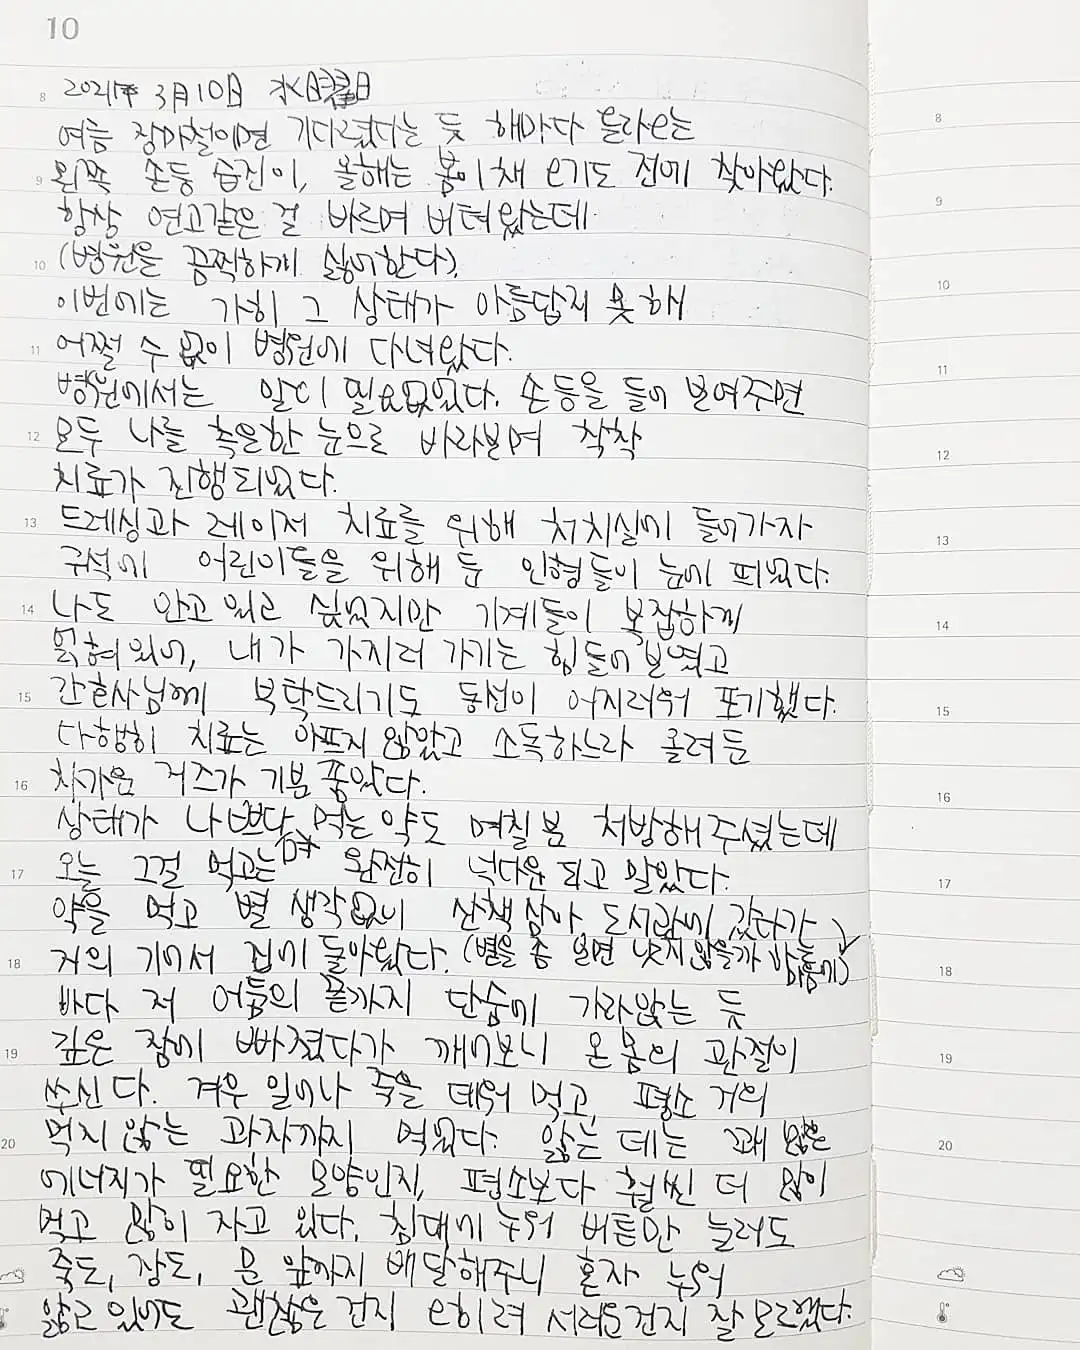 10
8 2021年 3月10日 水曜日
여름 장마철이면 기다렸다는 듯 해마다 올라오는
9 왼쪽 손등 습진이, 올해는 봄이 채 오기도 전에 찾아왔다.
항상 연고같은 걸 바르며 버텨왔는데
10 (병원을 끔찍하게 싫어한다).
이번에는 가히 그 상태가 아름답지 못해
11 어쩔 수 없이 병원에 다녀왔다.
병원에서는 말이 필요없었다. 손등을 들어 보여주면
12 모두 나를 측은한 눈으로 바라보며 착착
치료가 진행되었다.
13 드레싱과 레이저 치료를 위해 처치실에 들어가자
구석에 어린이들을 위해 둔 인형들이 눈에 띄었다.
14 나도 안고 있고 싶었지만 기계들이 복잡하게
얽혀있어, 내가 가지러 가기는 힘들어 보였고
15 간호사님께 부탁드리기도 동선이 어지러워 포기했다.
다행히 치료는 아프지 않았고 소독하느라 올려둔
16 차가운 거즈가 기분 좋았다.
상태가 나쁘다며 먹는 약도 며칠 분 처방해주셨는데
17 오늘 그걸 먹고는 완전히 넉다운되고 말았다.
약을 먹고 별 생각없이 산책 삼아 도서관에 갔다가
18 거의 기어서 집에 돌아왔다. (볕을 좀 보면 낫지 않을까 하는 마음에)
바다 저 어둠의 끝까지 단숨에 가라앉는 듯
19 깊은 잠에 빠졌다가 깨어보니 온 몸의 관절이
쑤신다. 겨우 일어나 죽을 데워 먹고, 평소 거의
20 먹지 않는 과자까지 먹었다. 앓는 데는 꽤 많은
에너지가 필요한 모양인지, 평소보다 훨씬 더 많이
먹고 많이 자고 있다. 침대에 누워 버튼만 눌러도
죽도, 잠도, 문 앞까지 배달해주니 혼자 누워
앓고 있어도 괜찮은건지 오히려 서러운건지 잘 모르겠다.
8
9
10
11
12
13
14
15
16
17
18
19
20